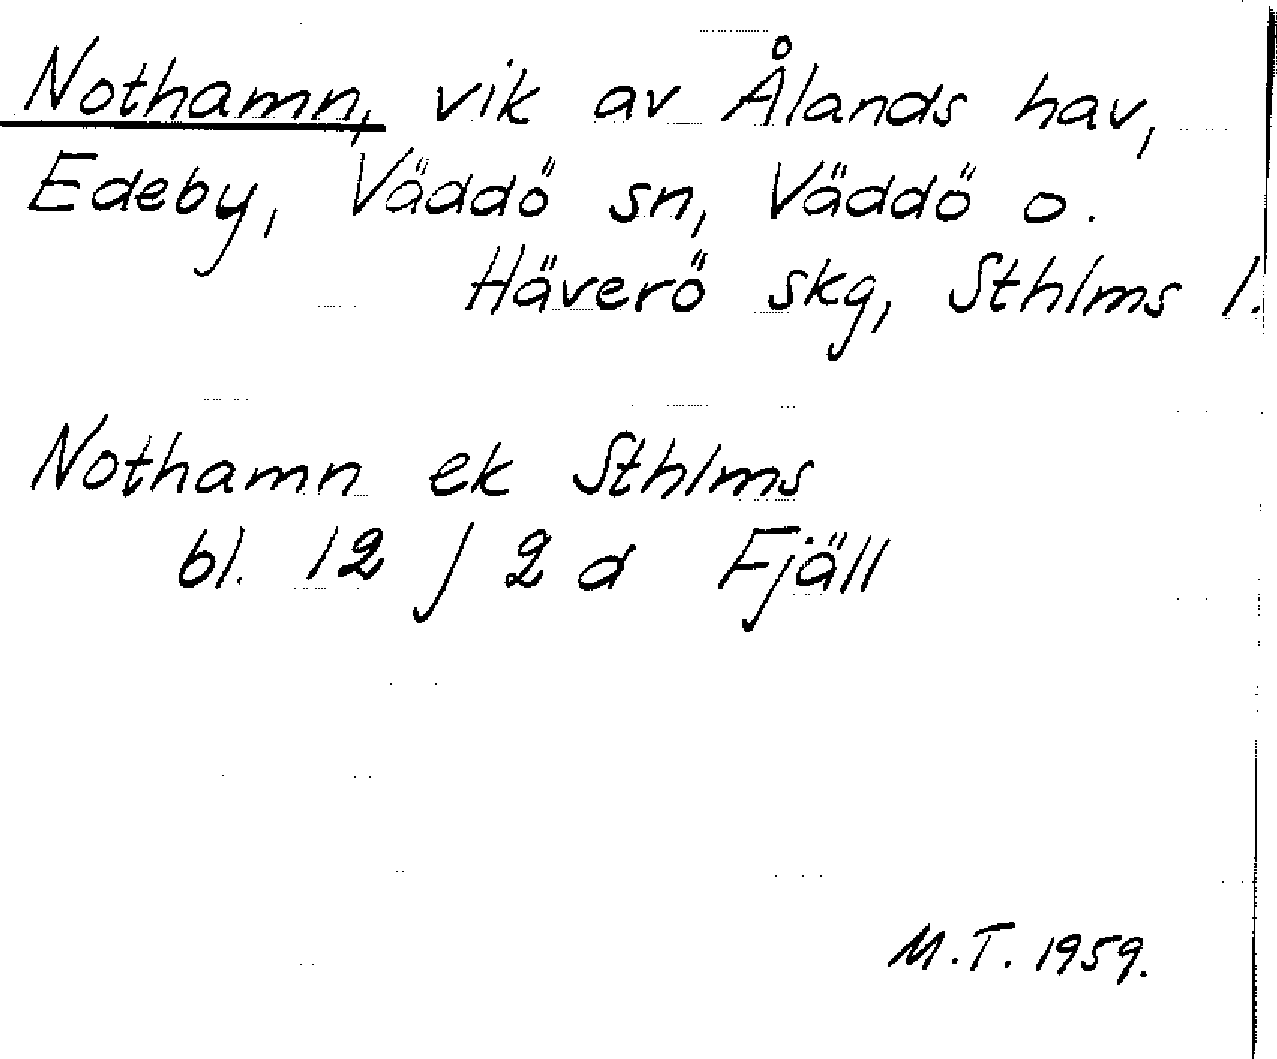 Nothamn, vik av Ålands hav,
Edeby, Väddö sn, Väddö o.
Häverö skg, Sthlms l.
Nothamn ek Sthlms
bl. 12 J 2 d Fjäll
M.T. 1959.